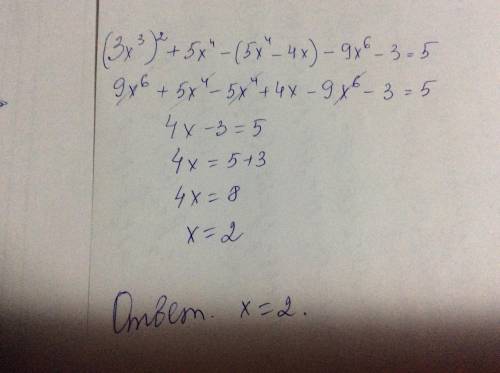 (3x³)² + 5x⁴ − (5x⁴ − 4x) − 9x⁶ − 3 = 5
9x⁶ + 5x⁴ − 5x⁴ + 4x − 9x⁶ − 3 = 5
4x − 3 = 5
4x = 5+3
4x = 8
x = 2
Ответ. x = 2.